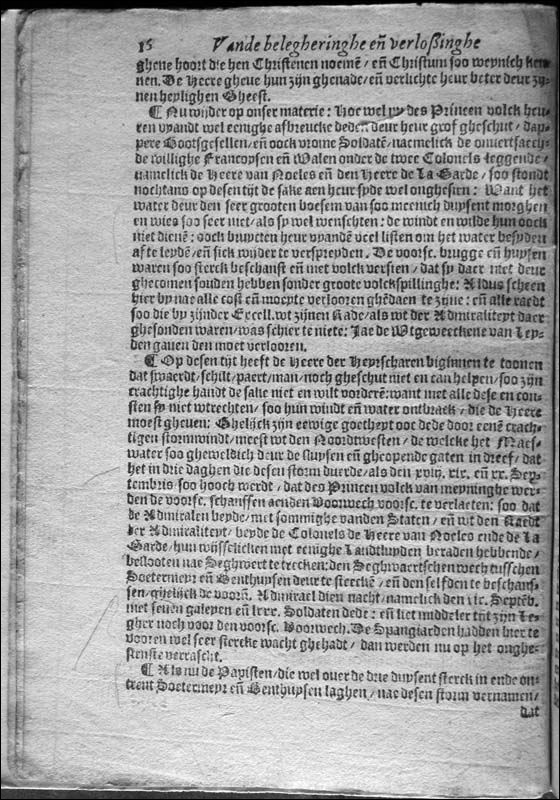 16 Vande belegheringhe en̄ verloßinghe
ghene hoort die hen Christenen noemē / en̄ Christum soo weynich ken-
nen. De Heere gheve hun zijn ghenade / en̄ verlichte heur beter deur zij-
nen heylighen Gheest.
¶ Nu wijder op onser materie: Hoe wel des Princen volck heu-
ren vyandt wel eenighe afbreucke dedē deur heur grof gheschut / dap-
pere Bootsgesellen / en̄ oock vrome Soldatē / namelick de onvertsaech-
de willighe Francoysen en̄ Walen onder de twee Colonels leggende /
namelick de Heere van Noeles en̄ den Heere de La Garde / soo stondt
nochtans op desen tijt de sake aen heur syde wel onghesien: Want het
water deur den seer grooten boesem van soo meenich duysent morghen
en wies soo seer niet / als sy wel wenschten: de windt en wilde hun oock
niet dienē: oock buycten heur vyandē veel listen om het water besyden
af te leydē / en̄ sick wijder te verspreyden. De voorsc. brugge en̄ huysen
waren soo sterck beschanst en̄ met volck versien / dat sy daer niet deur
ghecomen souden hebben sonder groote volckspillinghe: Aldus scheen
hier by nae alle cost en̄ moeyte verlooren ghedaen te zijne: en̄ alle raedt
soo die by zijnder Excell. wt zijnen Rade / als wt der Admiraliteyt daer
ghesonden waren / was schier te niete: Jae de Wtgeweeckene van Ley-
den gaven den moet verlooren.
¶ Op desen tijt heeft de Heere der Heyrscharen biginnen te toonen
dat swaerdt / schilt / paert / man / noch gheschut niet en can helpen / soo zijn
crachtighe handt de sake niet en wilt vorderē: want met alle dese en con-
sten sy niet wtrechten / soo hun windt en̄ water ontbrack / die de Heere
moest gheven: Ghelijck zijn eewige goetheyt ooc dede door eenē crach-
tigen stormwindt / meest wt den Noordtwesten / de welcke het Maes-
water soo gheweldich deur de sluysen en̄ gheopende gaten in dreef / dat
het in drie daghen die desen storm duerde / als den xviij. xix. en̄ xx. Sep-
tembris soo hooch werdt / dat des Princen volck van meyninghe wer-
den de voorsc. schanssen aenden Voorwech voorsc. te verlaeten: soo dat
de Admiralen beyde / met sommighe vanden Staten / en̄ wt den Raedt
der Admiraliteyt / beyde de Colonels de Heere van Noelco ende de La
Garde / hun wijsselicken met eenighe Landtluyden beraden hebbende /
beslooten nae Seghwert te trecken: den Seghwaertschen wech tusschen
Soetermeyr en̄ Benthuysen deur te steeckē / en̄ den selfden te beschans-
sen / ghelijck de voorn. Admirael dien nacht / namelick den xix. Septēb.
met seven galeyen en̄ lxxx. Soldaten dede: en̄ liet middeler tijt zijn Le-
gher noch voor den voorsc. Voorwech. De Spangiarden hadden hier te
vooren wel seer stercke wacht ghehadt / dan werden nu op het onghe-
sienste verrascht.
¶ Als nu de Papisten / die wel over de drie duysent sterck in ende on-
trent Soetermeyr en̄ Benthuysen laghen / nae desen storm vernamen /
dat